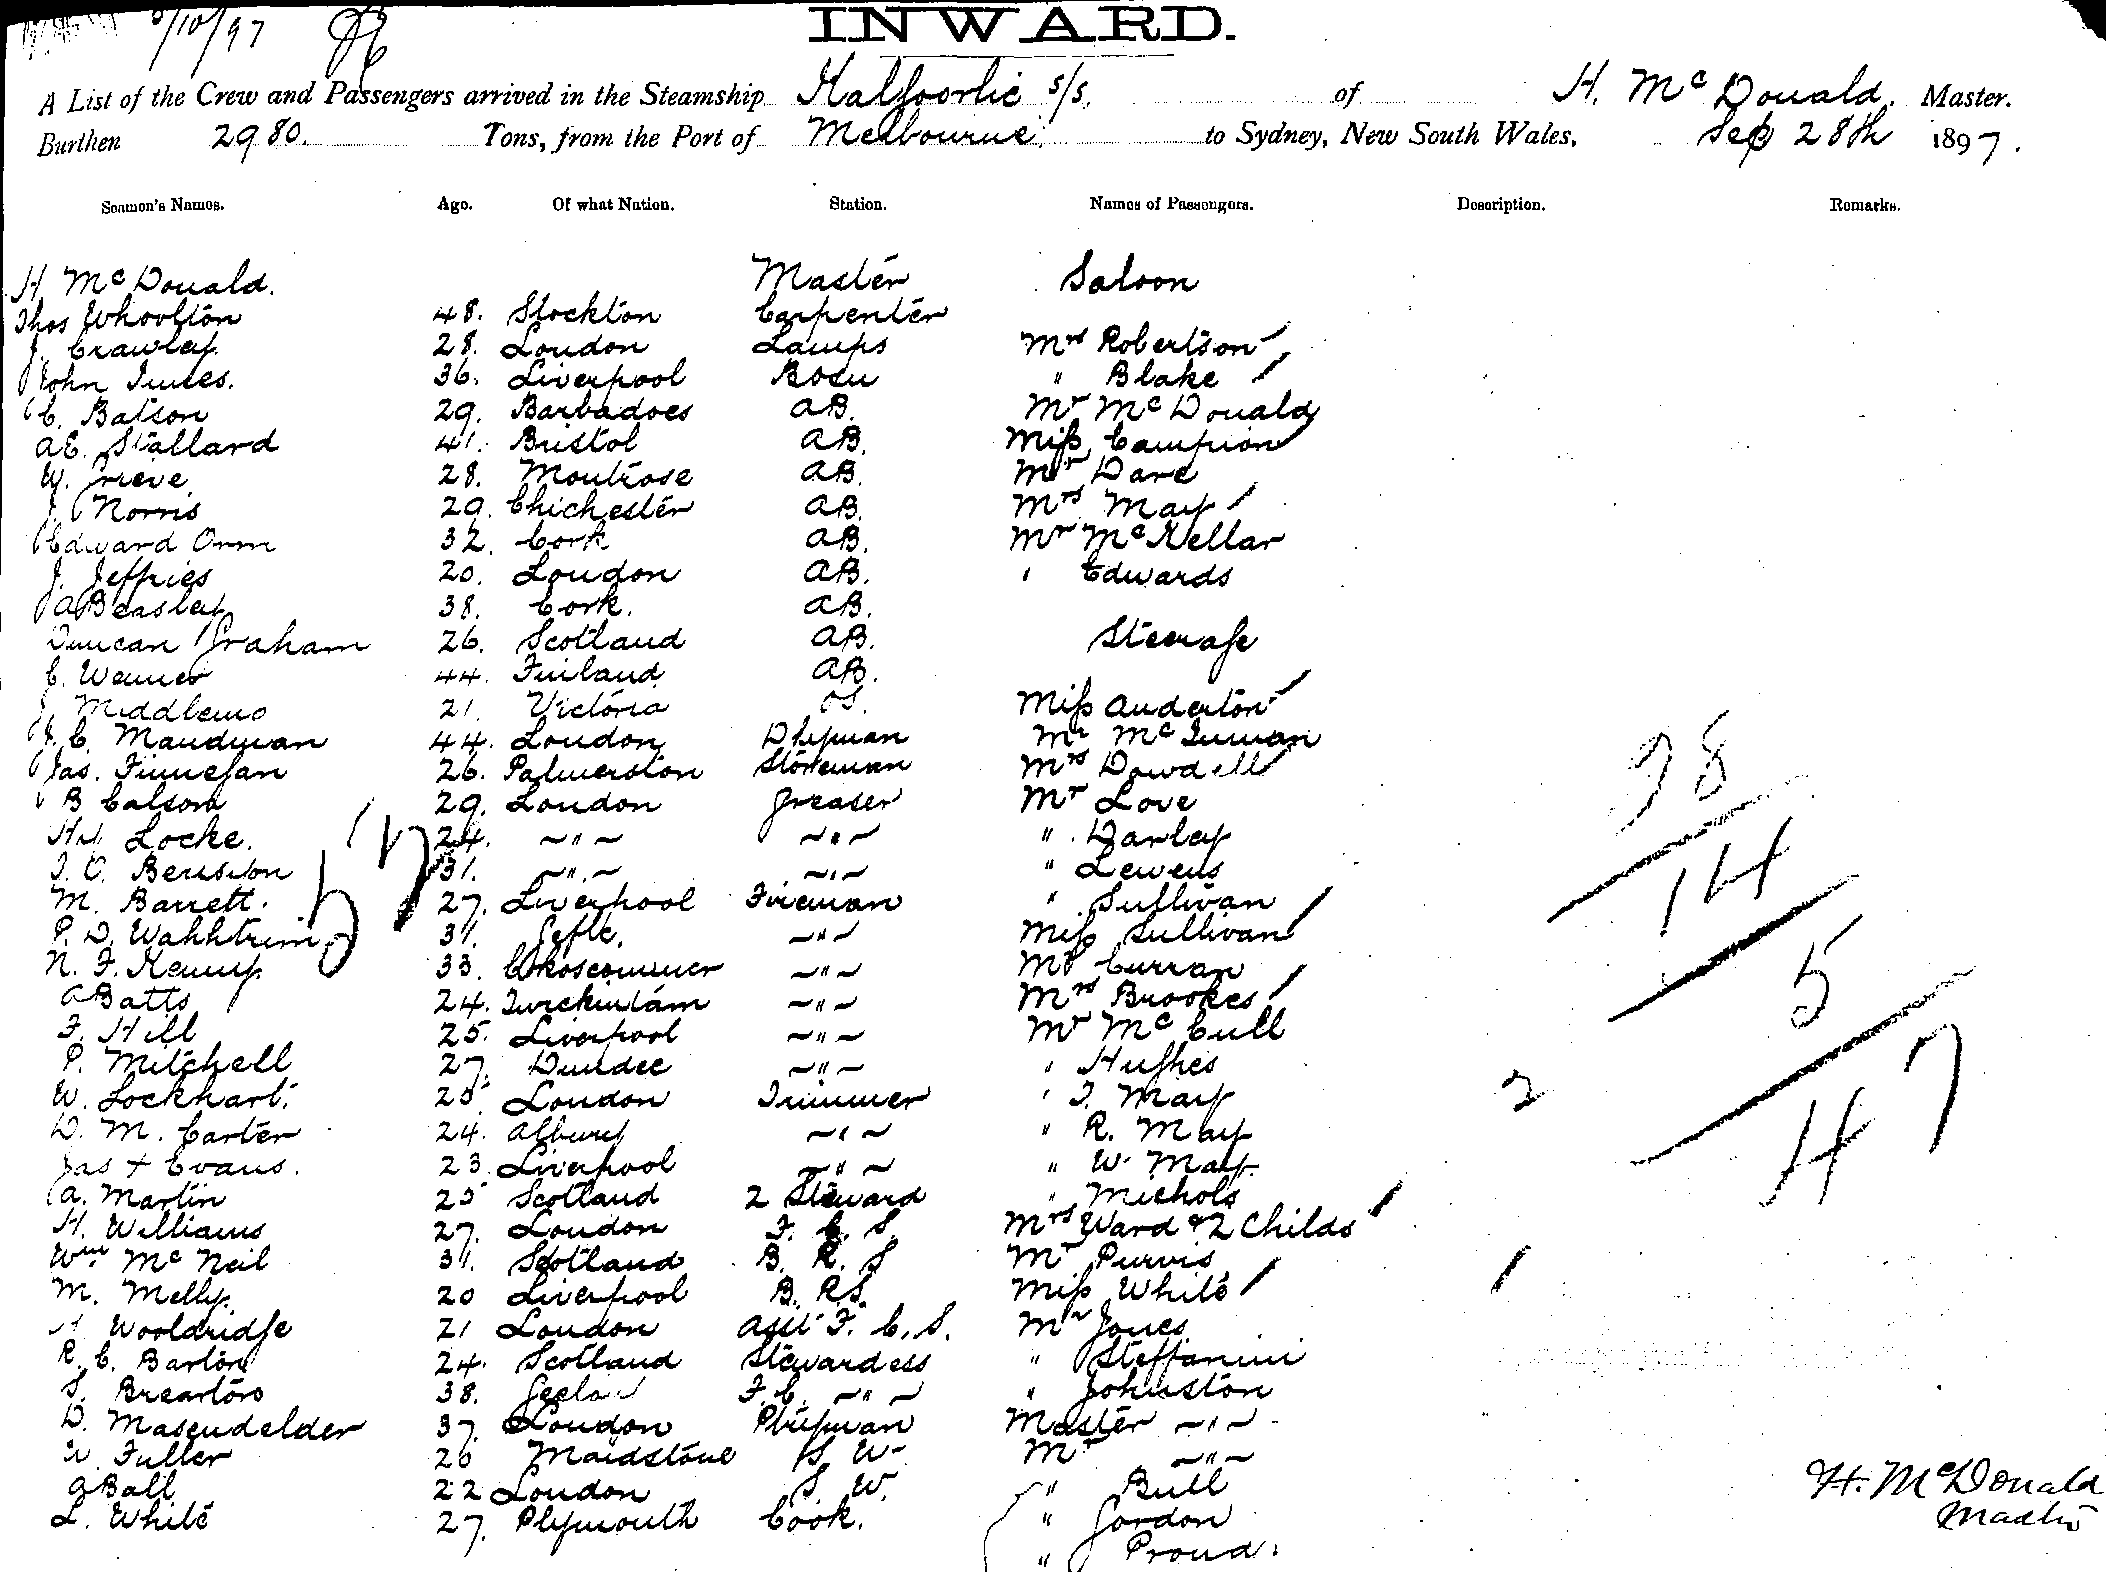 5/10/97
INWARD.
A List of the Crew and Passengers arrived in the Steamship Kalgoorlie s/s. of H. McDonald. Master.
Burthen 2980. Tons, from the Port of Melbourne to Sydney, New South Wales, Sep 28th 1897.
Seamen's Names. Age. Of what Nation. Station. Names of Passengers. Description. Remarks.
H. McDonald. Master Saloon
Thos Whoolton 48. Stockton Carpenter
J. Crawley 28. London Lamps Mrs Robertson
John Innes. 36. Liverpool Bosn " Blake
C. Batson 29. Barbadoes AB. Mr McDonald
A.E. Stallard 41. Bristol AB. Miss Campion
W. Grieve 28. Montrose AB. Mr Dare
J. Norris 29. Chichester AB. Mrs May
Edward Orm 32. Cork AB. Mr McKellar
J. Jeffries 20. London AB. " Edwards
A Beasley 38. Cork. AB.
Duncan Graham 26. Scotland AB. Steerage
C. Werner 44. Finland AB.
J. Middlemo 21. Victoria OS. Miss Anderton
J. C. Maudman 44. London Mr McInnan
Jas. Finnegan 26. Palmerston Storeman Mrs Dowdell
B Calson 29. London Greaser Mr Love
Hy Locke. 24. " " " Darley
31. " " " Lewens
M. Barrett. 27. Liverpool Fireman " Sullivan
31. Gefle. " Miss Sullivan
N. F. Kemp 33. " Mr Curran
A Batts 24. " Mrs Brookes
F. Hill 25. Liverpool " Mr McCull
P. Mitchell 27. Dundee " " Hughes
W. Lockhart. 25 London Trimmer " T. May
D. M. Carter 24. Albury " " R. May
Jas + Evans. 23. Liverpool " " W. May
A. Martin 25 Scotland 2 Steward " Nichols
H. Williams 27. London F. C. S. Mrs Ward & 2 Childs
Wm McNeil 31. Scotland B. R. S Mr Purvis
M. Melly. 20 Liverpool B. R.S. Miss White
Wooldridge 21 London Asst F. C. S. Mr Jones
R. C. Barton 24. Scotland Stewardess " Steffanini
S. Breartons 38. F. C. " " Johnston
D. Masendelder 37. London Master "
W Fuller 26 Maidstone S. W. Mr "
A Ball 22 London S. W. " Bull
L. White 27. Plymouth Cook. " Gordon
" Proud.
98
14
5
47
2
57
H. McDonald
Master